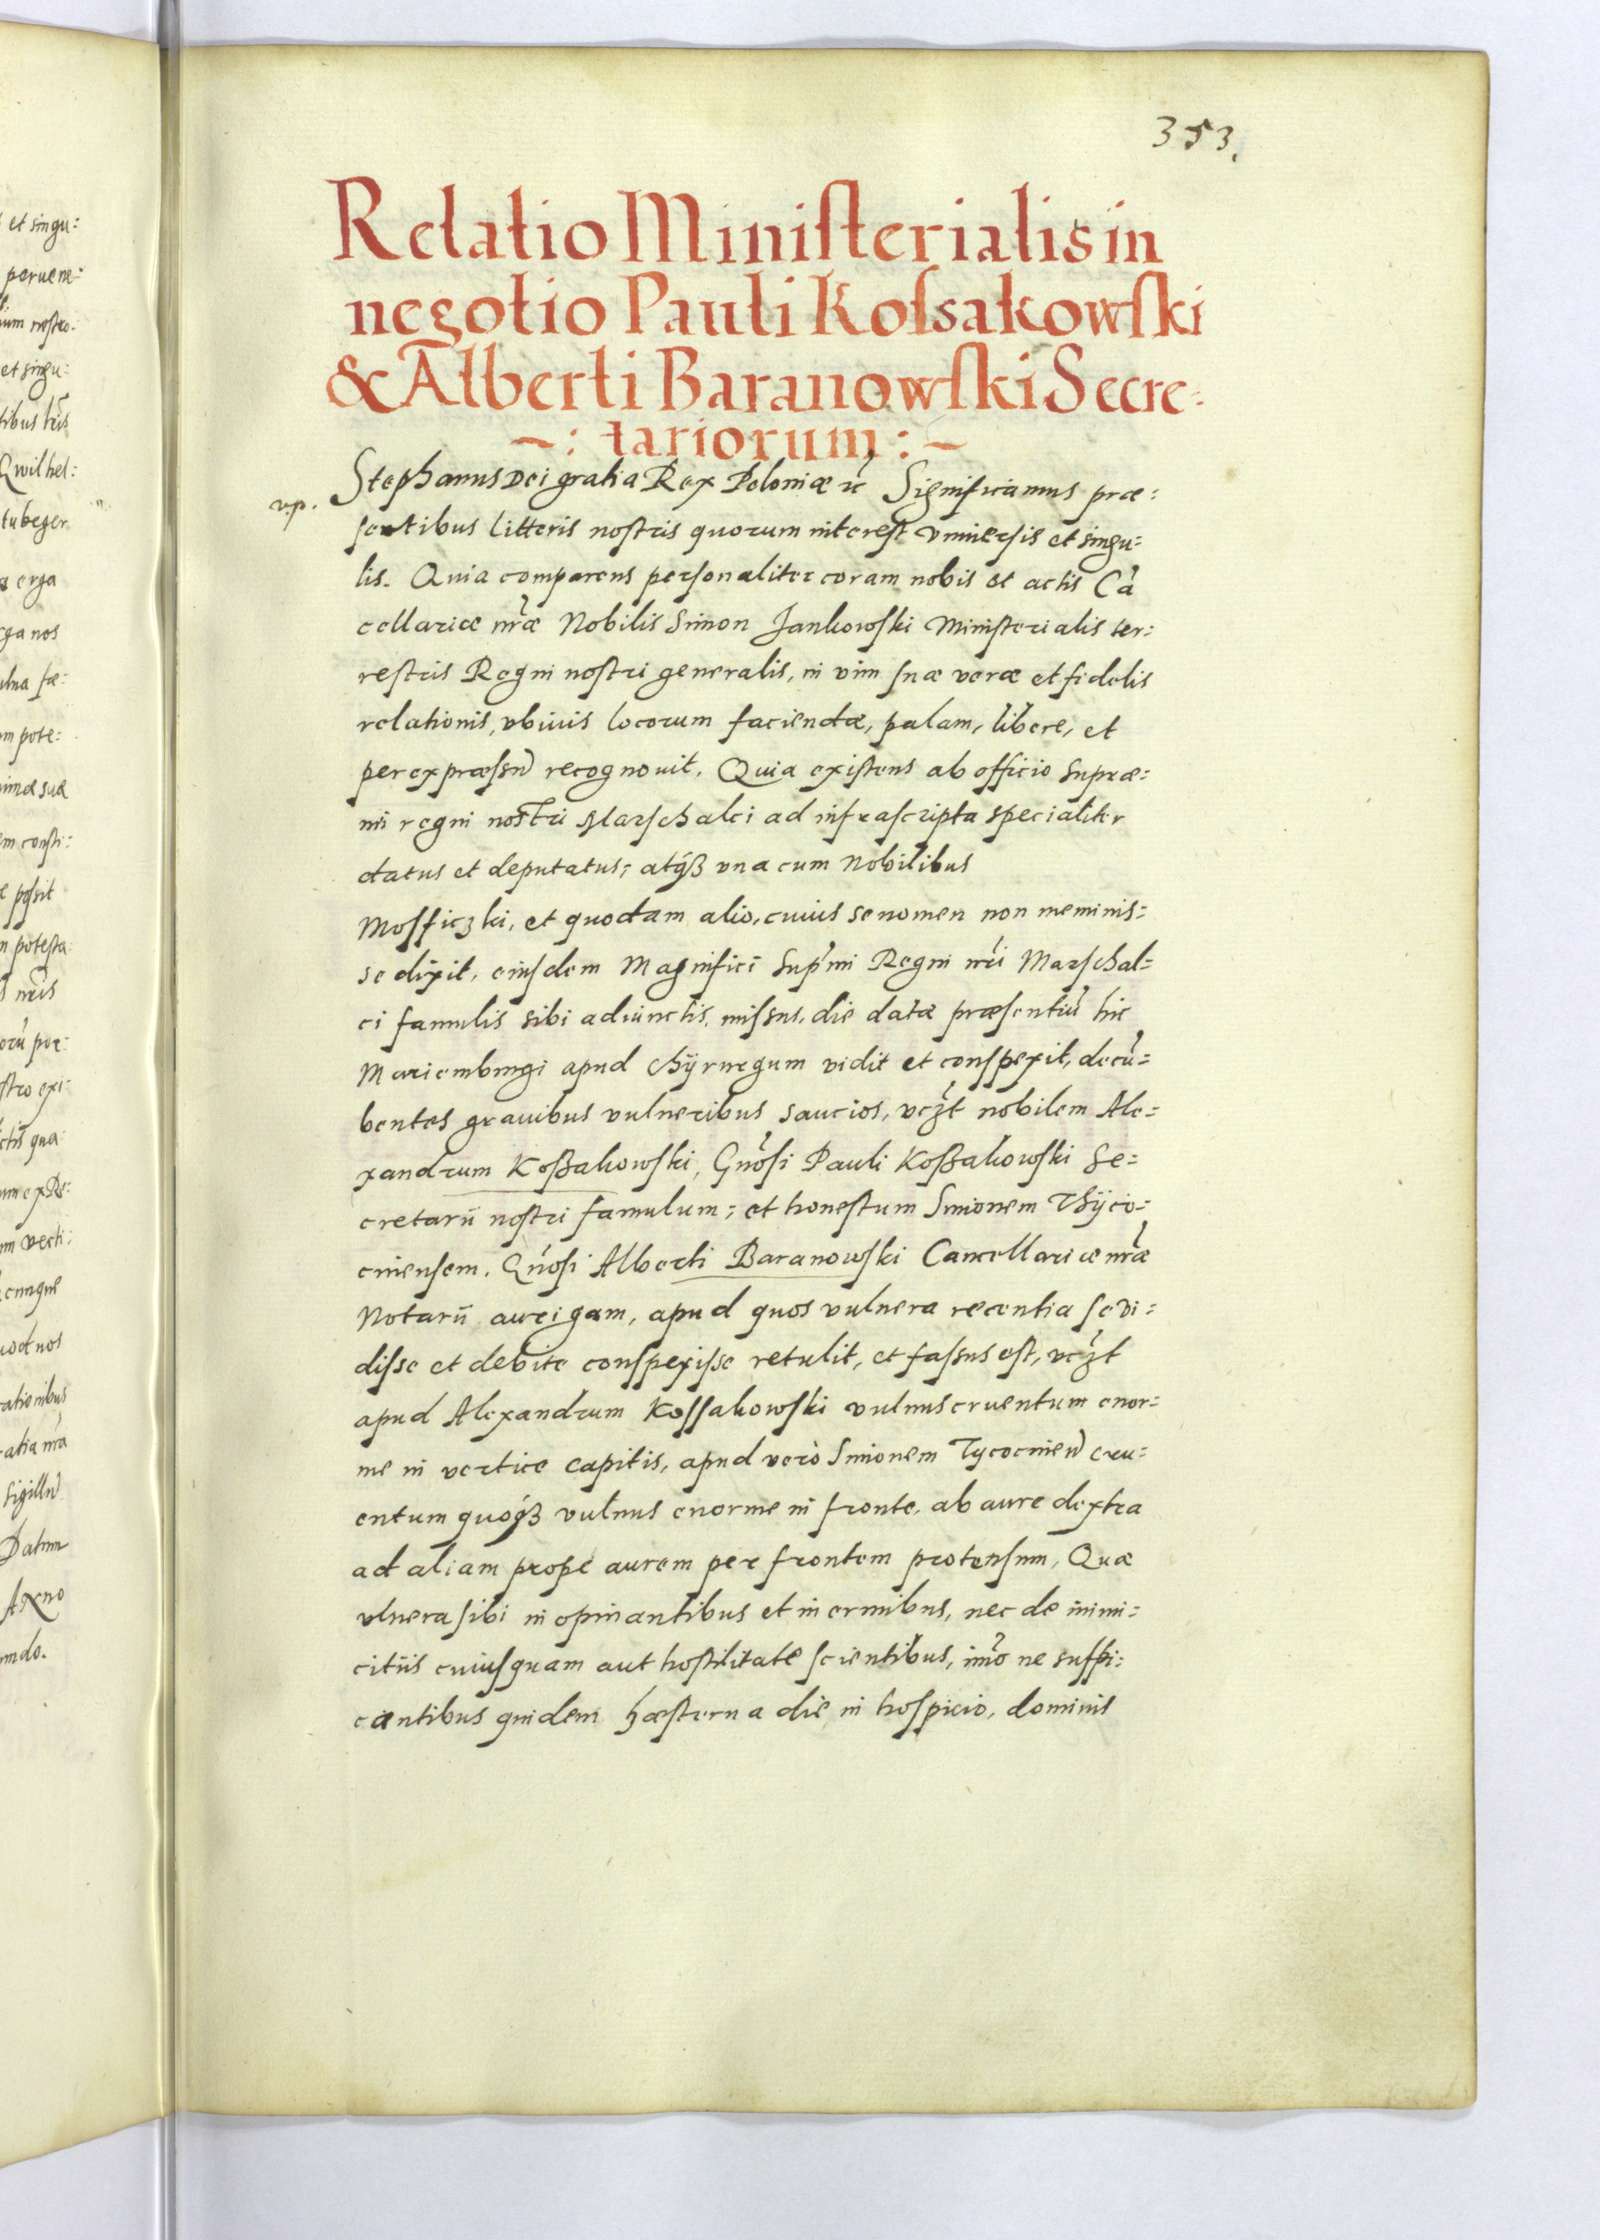 353.
Relatio Ministerialis in
negotio Pauli Kossakowski
& Alberti Baranowski Secre=
~: tariorum :~
v.p.
Stephanus Dei gratia Rex Poloniæ &c̃ Significamus præ=
sentibus litteris nostris quorum interest vniuersis et singu=
lis. Quia comparens personaliter coram nobis et actis Cã
cellariæ nr̃æ Nobilis Simon Jankowski Ministerialis ter=
restris Regni nostri generalis, in vim suæ veræ et fidelis
relationis, vbiuis locorum faciendæ, palam, libere, et
per expræssũ recognouit. Quia existens ab officio Supræ=
mi regni nostri Marschalci ad infrascripta specialiter
datus et deputatus; atq́ꝫ vna cum Nobilibus
Mosficzki, et quodam alio, cuius se nomen non meminis=
se dixit, eiusdem Magnifici Supr̃mi Regni nr̃i Marschal=
ci famulis sibi adiunctis, missus, die datæ præsentiũ hic
Mariemburgi apud chÿrurgum vidit et conspexit, decũ=
bentes grauibus vulneribus saucios, vcꝫt nobilem Ale=
xandrum Koßakowski, Gñosi Pauli Koßakowski Se=
cretarii nostri famulum; et honestum Simonem Thÿco=
cinensem, Gñosi Alberti Baranowski Cancellariæ nr̃æ
Notarii aurigam, apud quos vulnera recentia se vi=
disse et debite conspexisse retulit, et fassus est, vcꝫt
apud Alexandrum Kossakowski vulnus cruentum enor=
me in vertice capitis, apud verò Simonem Tycocineñ cru=
entum quoq́ꝫ vulnus enorme in fronte, ab aure dextra
ad aliam prope aurem per frontem protensum, Quæ
vlnera sibi in opinantibus et in ermibus, nec de inimi=
citiis cuiusquam aut hostilitate scientibus, im̃o ne suspi=
cantibus quidem hæsterna die in hospicio, dominis